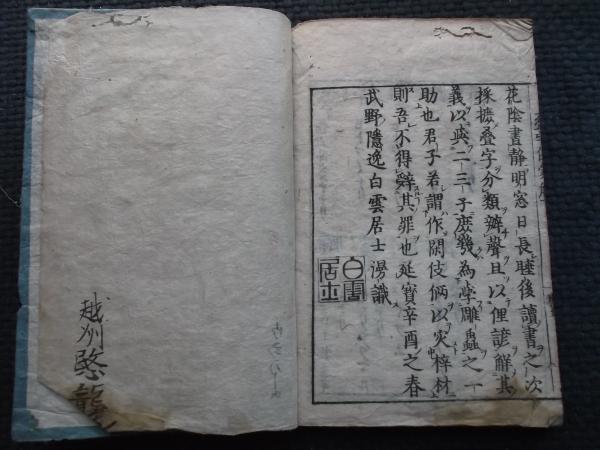 花陰晝靜明窓日長睡後讀書之次
採摭疊字分類辨聲且以俚諺解其
義以與二三子庶幾為學雕蟲之一
助也君子若謂作閑伎倆以災梓材
則吾不得辭其罪也延寶辛酉之春
武野隱逸白雲居士謾識
白雲
居士
越州